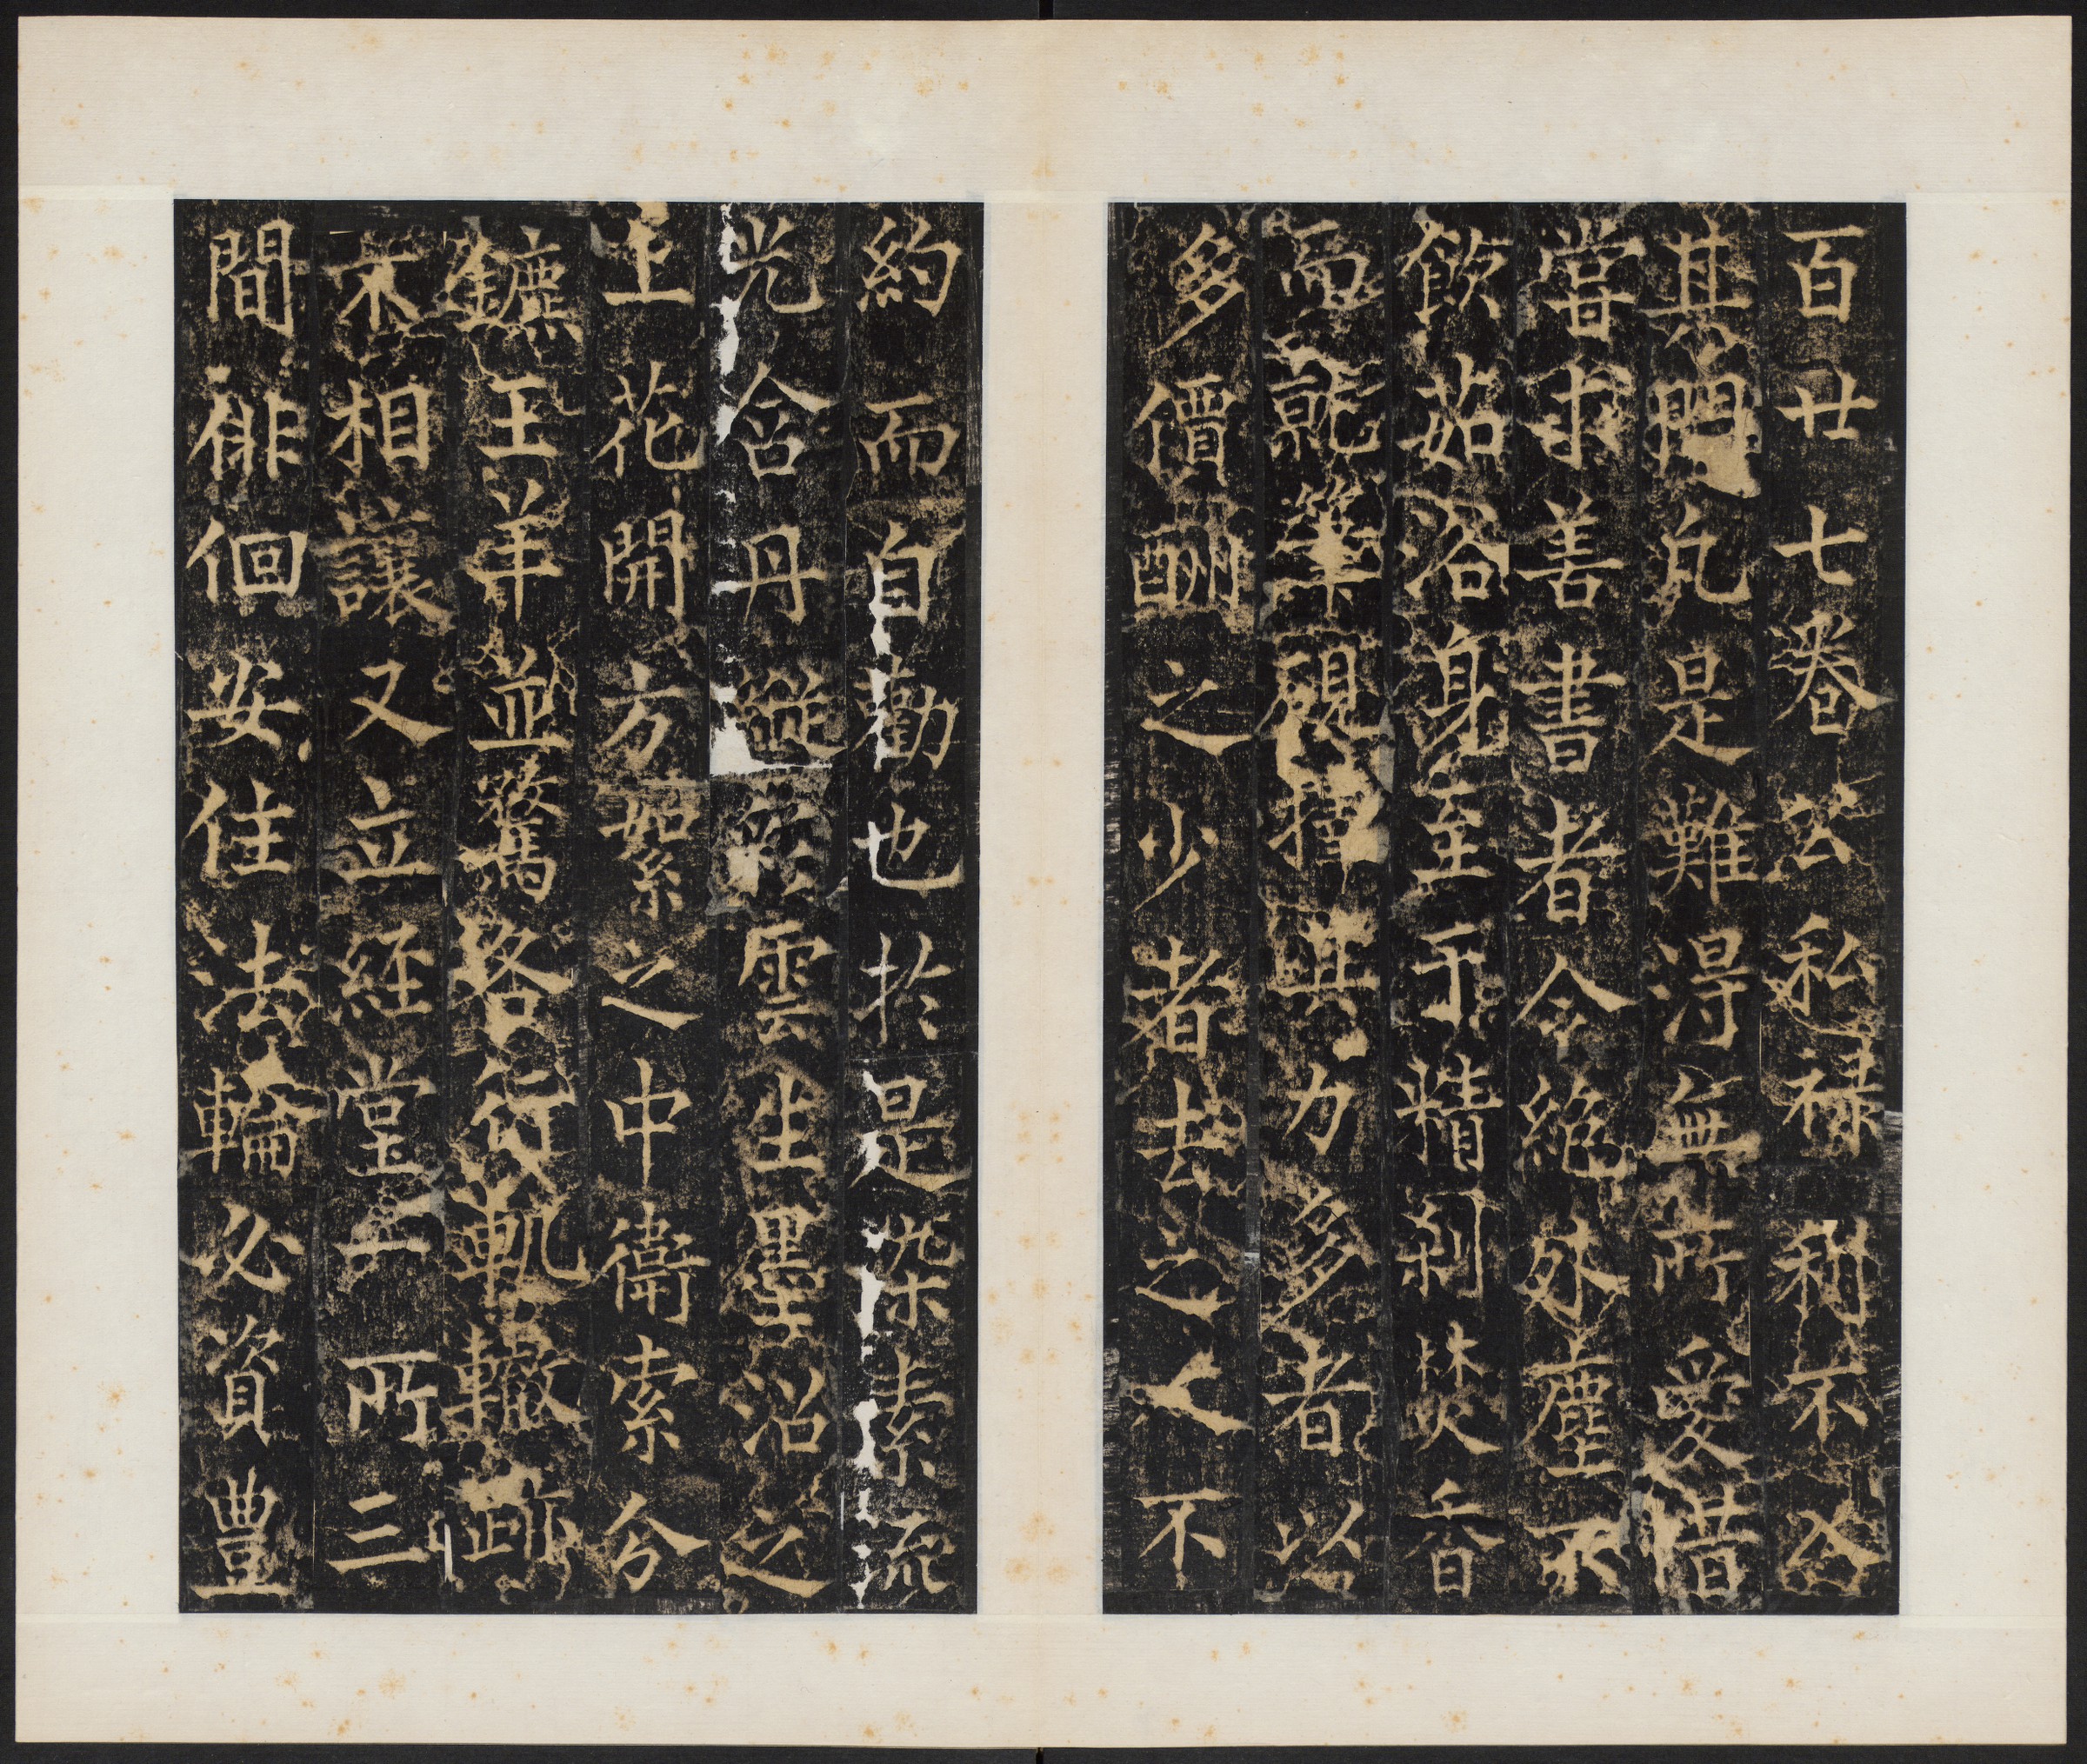 百廿七卷公私祿利不入
其門凡是難得無所愛惜
嘗求善書者令絕外塵不
飲茹浴身至于精剎焚香
而就筆硯其力多者以
多價酬之少者去之人不
約而自勸也於是染素流
光含丹縱彩雲生墨沼之
上花開方絮之中衛索分
鑣王羊並騖行軌轍
不相讓又立經堂一所三
間俳佪安住法輪必資豊